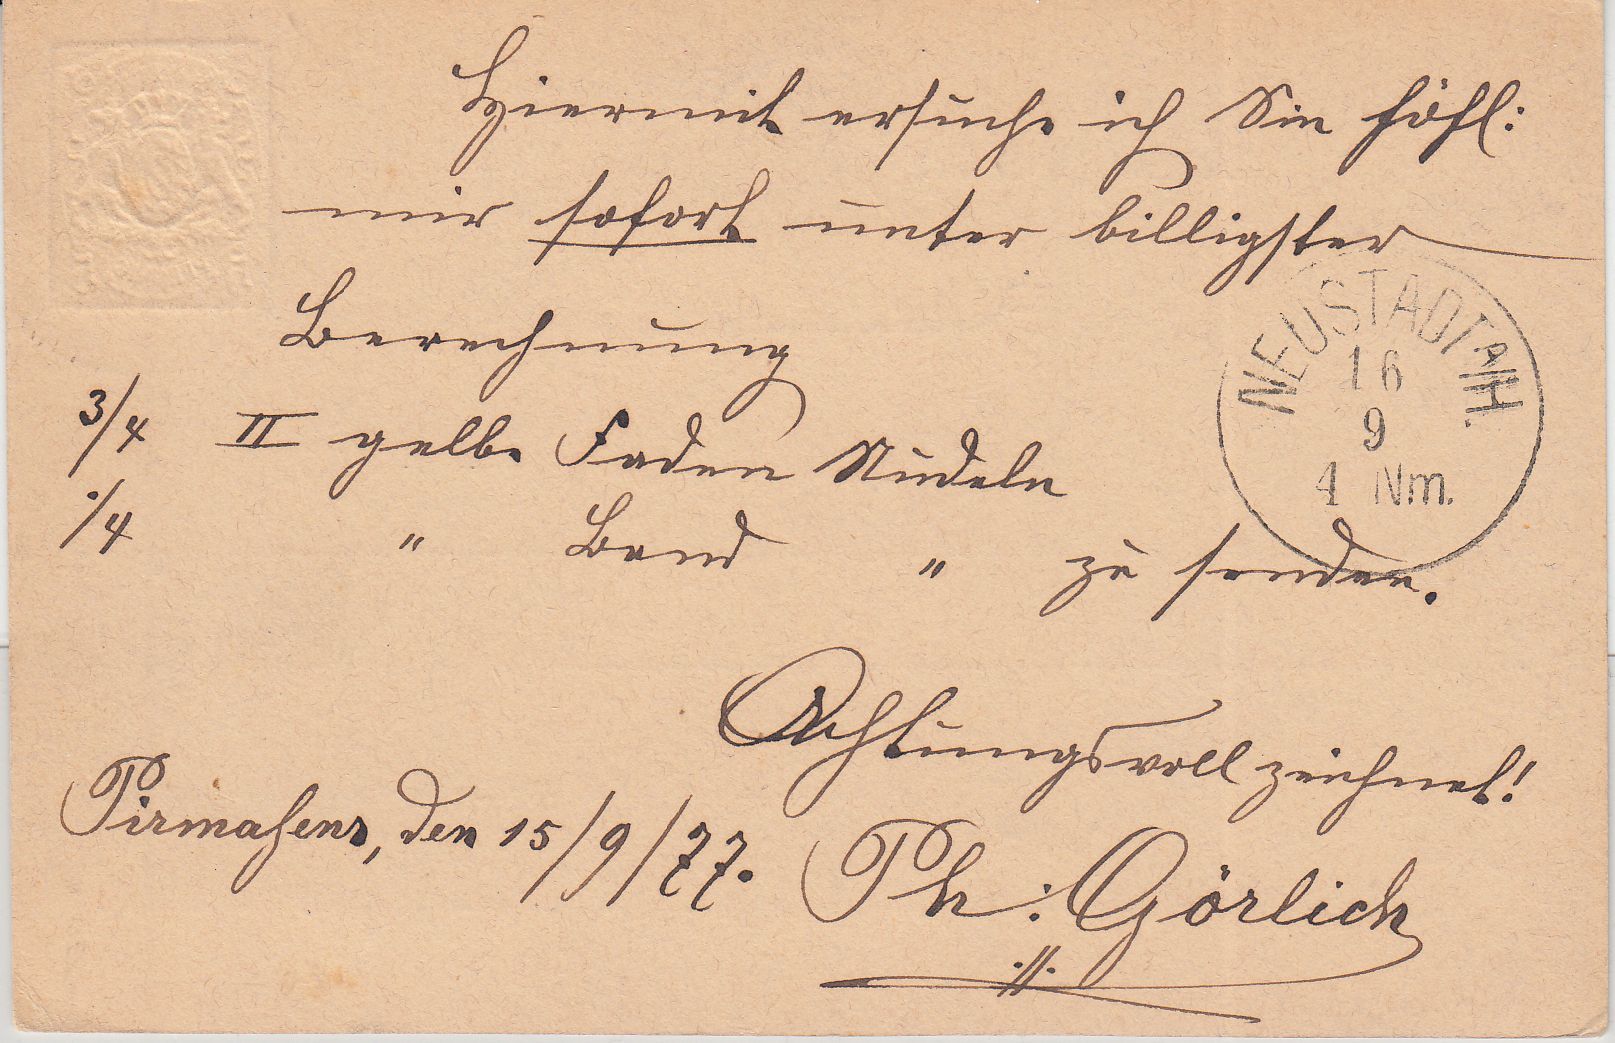 Hiermit ersuche ich Sie höfl:
mir sofort unter billigster
Berechnung
3/4 II gelbe Faden Nudeln
1/4 " Band " zu senden.
NEUSTADT A/H.
16
9
4 Nm.
Achtungsvoll zeichnet!
Pirmasens, den 15/9/77.
Ph: Görlich